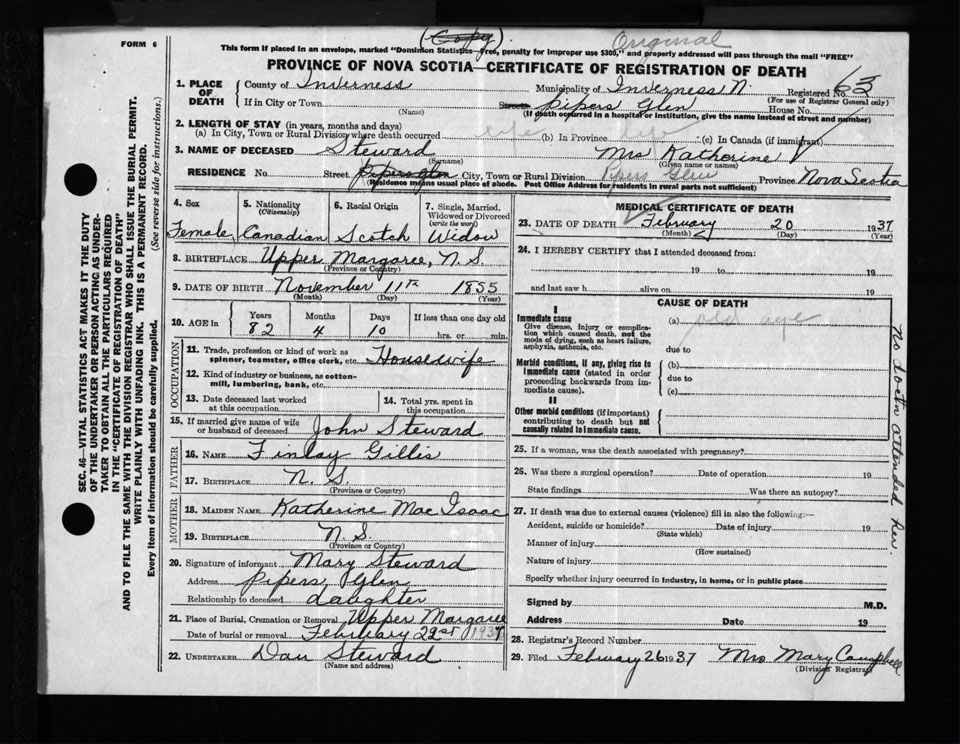 (Copy)
Original
FORM 6
This form if placed in an envelope, marked "Dominion Statistics—Free, penalty for improper use $300," and properly addressed will pass through the mail "FREE"
PROVINCE OF NOVA SCOTIA—CERTIFICATE OF REGISTRATION OF DEATH
1. PLACE OF DEATH County of Inverness Municipality of Inverness N. Registered No. 63
(For use of Registrar General only)
If in City or Town (Name) Street Pipers Glen House No.
(If death occurred in a hospital or institution, give the name instead of street and number)
2. LENGTH OF STAY (in years, months and days)
(a) In City, Town or Rural Division where death occurred life (b) In Province life (c) In Canada (if immigrant)
3. NAME OF DECEASED Steward Mrs Katherine
(Surname) (Given name or names)
RESIDENCE No. Street Pipers Glen City, Town or Rural Division Pipers Glen Province Nova Scotia
(Residence means usual place of abode. Post Office Address for residents in rural parts not sufficient)
4. Sex 5. Nationality (Citizenship) 6. Racial Origin 7. Single, Married, Widowed or Divorced (write the word)
Female Canadian Scotch Widow
8. BIRTHPLACE Upper Margaree, N. S.
(Province or Country)
9. DATE OF BIRTH November 11th 1855
(Month) (Day) (Year)
10. AGE in Years Months Days If less than one day old
82 4 10 hrs. or min.
OCCUPATION
11. Trade, profession or kind of work as spinner, teamster, office clerk, etc. Housewife
12. Kind of industry or business, as cotton-mill, lumbering, bank, etc.
13. Date deceased last worked at this occupation
14. Total yrs. spent in this occupation
15. If married give name of wife or husband of deceased John Steward
FATHER
16. NAME Finlay Gillis
17. BIRTHPLACE N. S.
(Province or Country)
MOTHER
18. MAIDEN NAME Katherine Mac Isaac
19. BIRTHPLACE N. S.
(Province or Country)
20. Signature of informant Mary Steward
Address Pipers Glen
Relationship to deceased daughter
21. Place of Burial, Cremation or Removal Upper Margaree
Date of burial or removal February 22st 1937
22. UNDERTAKER Dan Steward
(Name and address)
MEDICAL CERTIFICATE OF DEATH
23. DATE OF DEATH February 20 1937
(Month) (Day) (Year)
24. I HEREBY CERTIFY that I attended deceased from:
19 to 19
and last saw h alive on 19
CAUSE OF DEATH
I
Immediate cause
Give disease, injury or complication which caused death, not the mode of dying, such as heart failure, asphyxia, asthenia, etc.
(a) old age
due to
Morbid conditions, if any, giving rise to immediate cause (stated in order proceeding backwards from immediate cause).
(b)
due to
(c)
II
Other morbid conditions (if important) contributing to death but not causally related to immediate cause.
25. If a woman, was the death associated with pregnancy?
26. Was there a surgical operation? Date of operation 19
State findings Was there an autopsy?
27. If death was due to external causes (violence) fill in also the following:—
Accident, suicide or homicide? Date of injury 19
(State which)
Manner of injury
(How sustained)
Nature of injury
Specify whether injury occurred in industry, in home, or in public place
Signed by M.D.
Address Date 19
28. Registrar's Record Number
29. Filed February 26 1937 Mrs Mary Campbell
(Division Registrar)
No doctor attended her
SEC. 46—VITAL STATISTICS ACT MAKES IT THE DUTY
OF THE UNDERTAKER OR PERSON ACTING AS UNDER-
TAKER TO OBTAIN ALL THE PARTICULARS REQUIRED
IN THE "CERTIFICATE OF REGISTRATION OF DEATH"
AND TO FILE THE SAME WITH THE DIVISION REGISTRAR WHO SHALL ISSUE THE BURIAL PERMIT.
WRITE PLAINLY WITH UNFADING INK. THIS IS A PERMANENT RECORD.
Every item of information should be carefully supplied. (See reverse side for instructions.)